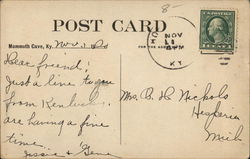 8-
POST CARD
Mammoth Cave, Ky. Nov.
FOR THE
NOV
11
KY
Dear friend:
Just a line to you
from Kentucky.
are having a fine
time.
Jessie & Gene
Mrs. B. D. Nickols
Hesperia
Mich